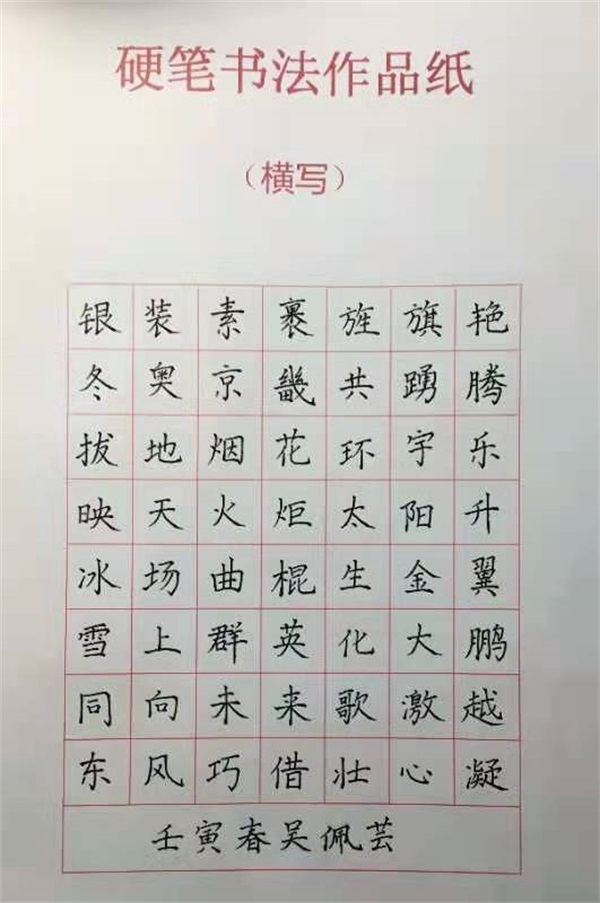 硬笔书法作品纸
（横写）
银装素裹旌旗艳
冬奥京畿共踴腾
拔地烟花环宇乐
映天火炬太阳升
冰场曲棍生金翼
雪上群英化大鹏
同向未来歌激越
东风巧借壮心凝
壬寅春吴佩芸